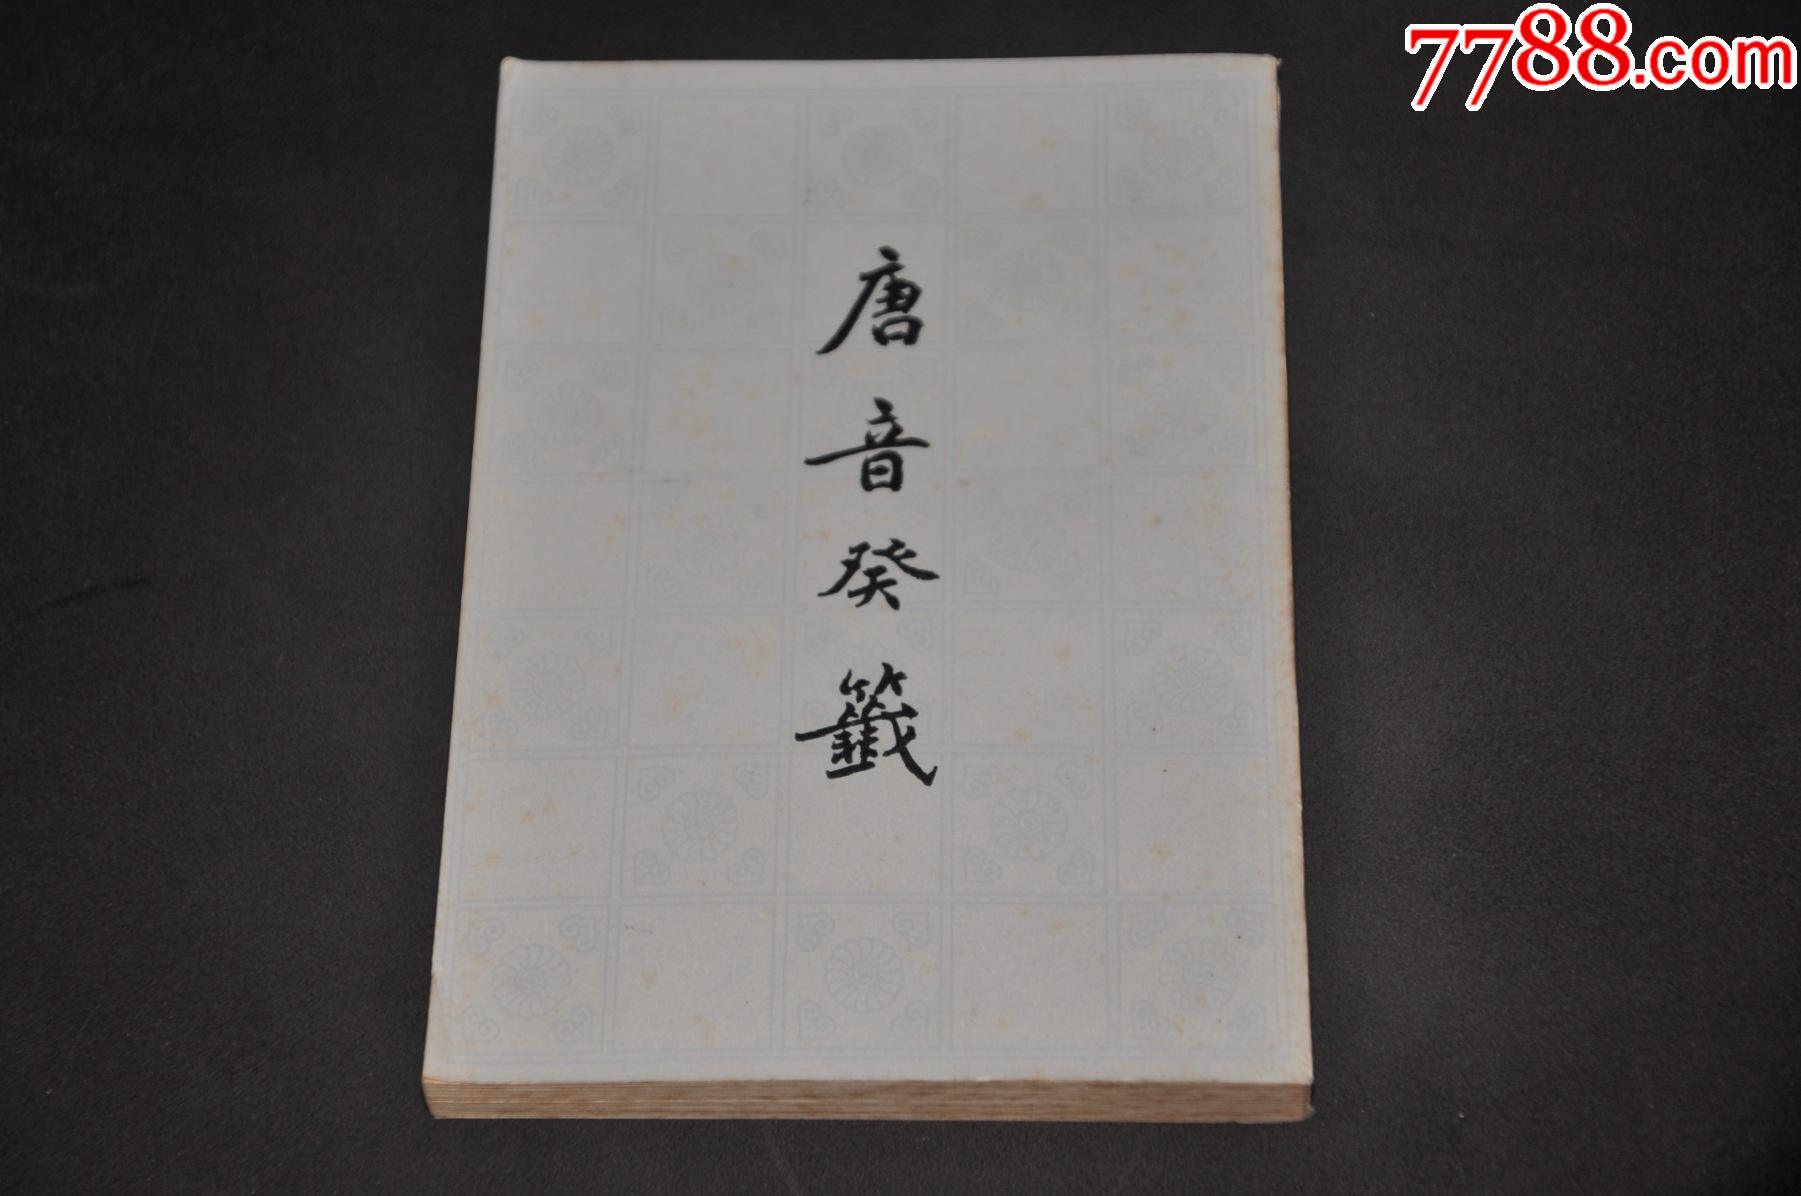 7788.com
唐音癸籤